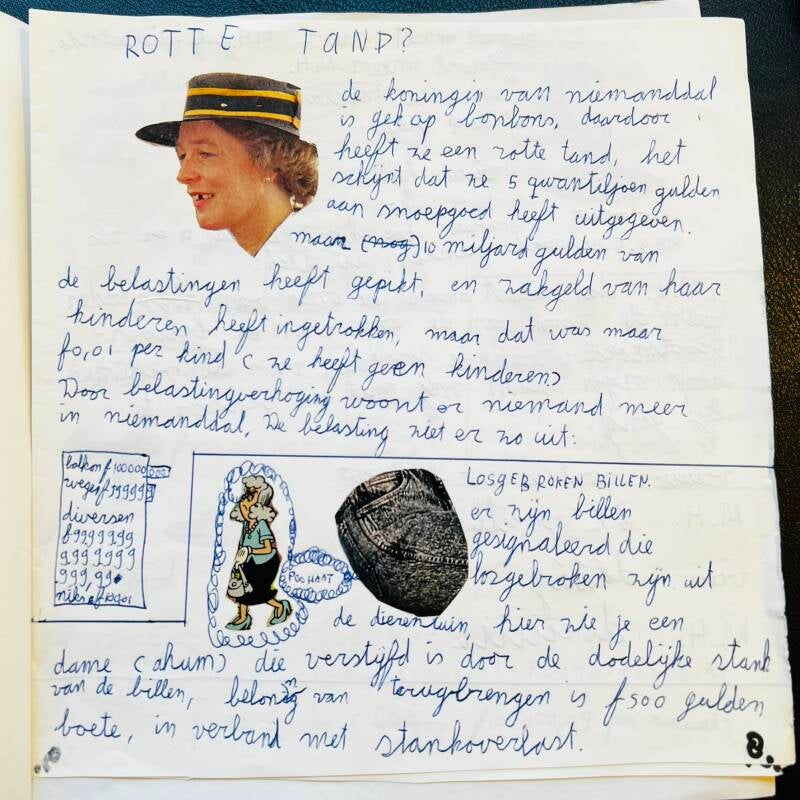 ROTTE TAND?
de koningin van niemanddal
is gek op bonbons, daardoor
heeft ze een rotte tand, het
schijnt dat ze 5 quantiljoen gulden
aan snoepgoed heeft uitgegeven.
maar (nog) 10 miljard gulden van
de belastingen heeft gepikt, en zakgeld van haar
kinderen heeft ingetrokken, maar dat was maar
f0,01 per kind (ze heeft geen kinderen)
Door belastingverhoging woont er niemand meer
in niemanddal. De belasting ziet er zo uit:
balkon f 100000
wegen f 99999
diversen
f9999999
9999999
999,99
niks
POEHAAT
LOSGEBROKEN BILLEN.
er zijn billen
gesignaleerd die
losgebroken zijn uit
de dierentuin, hier zie je een
dame (ahum) die verstijfd is door de dodelijke stank
van de billen, beloning van terugbrengen is f500 gulden
boete, in verband met stankoverlast.
8.